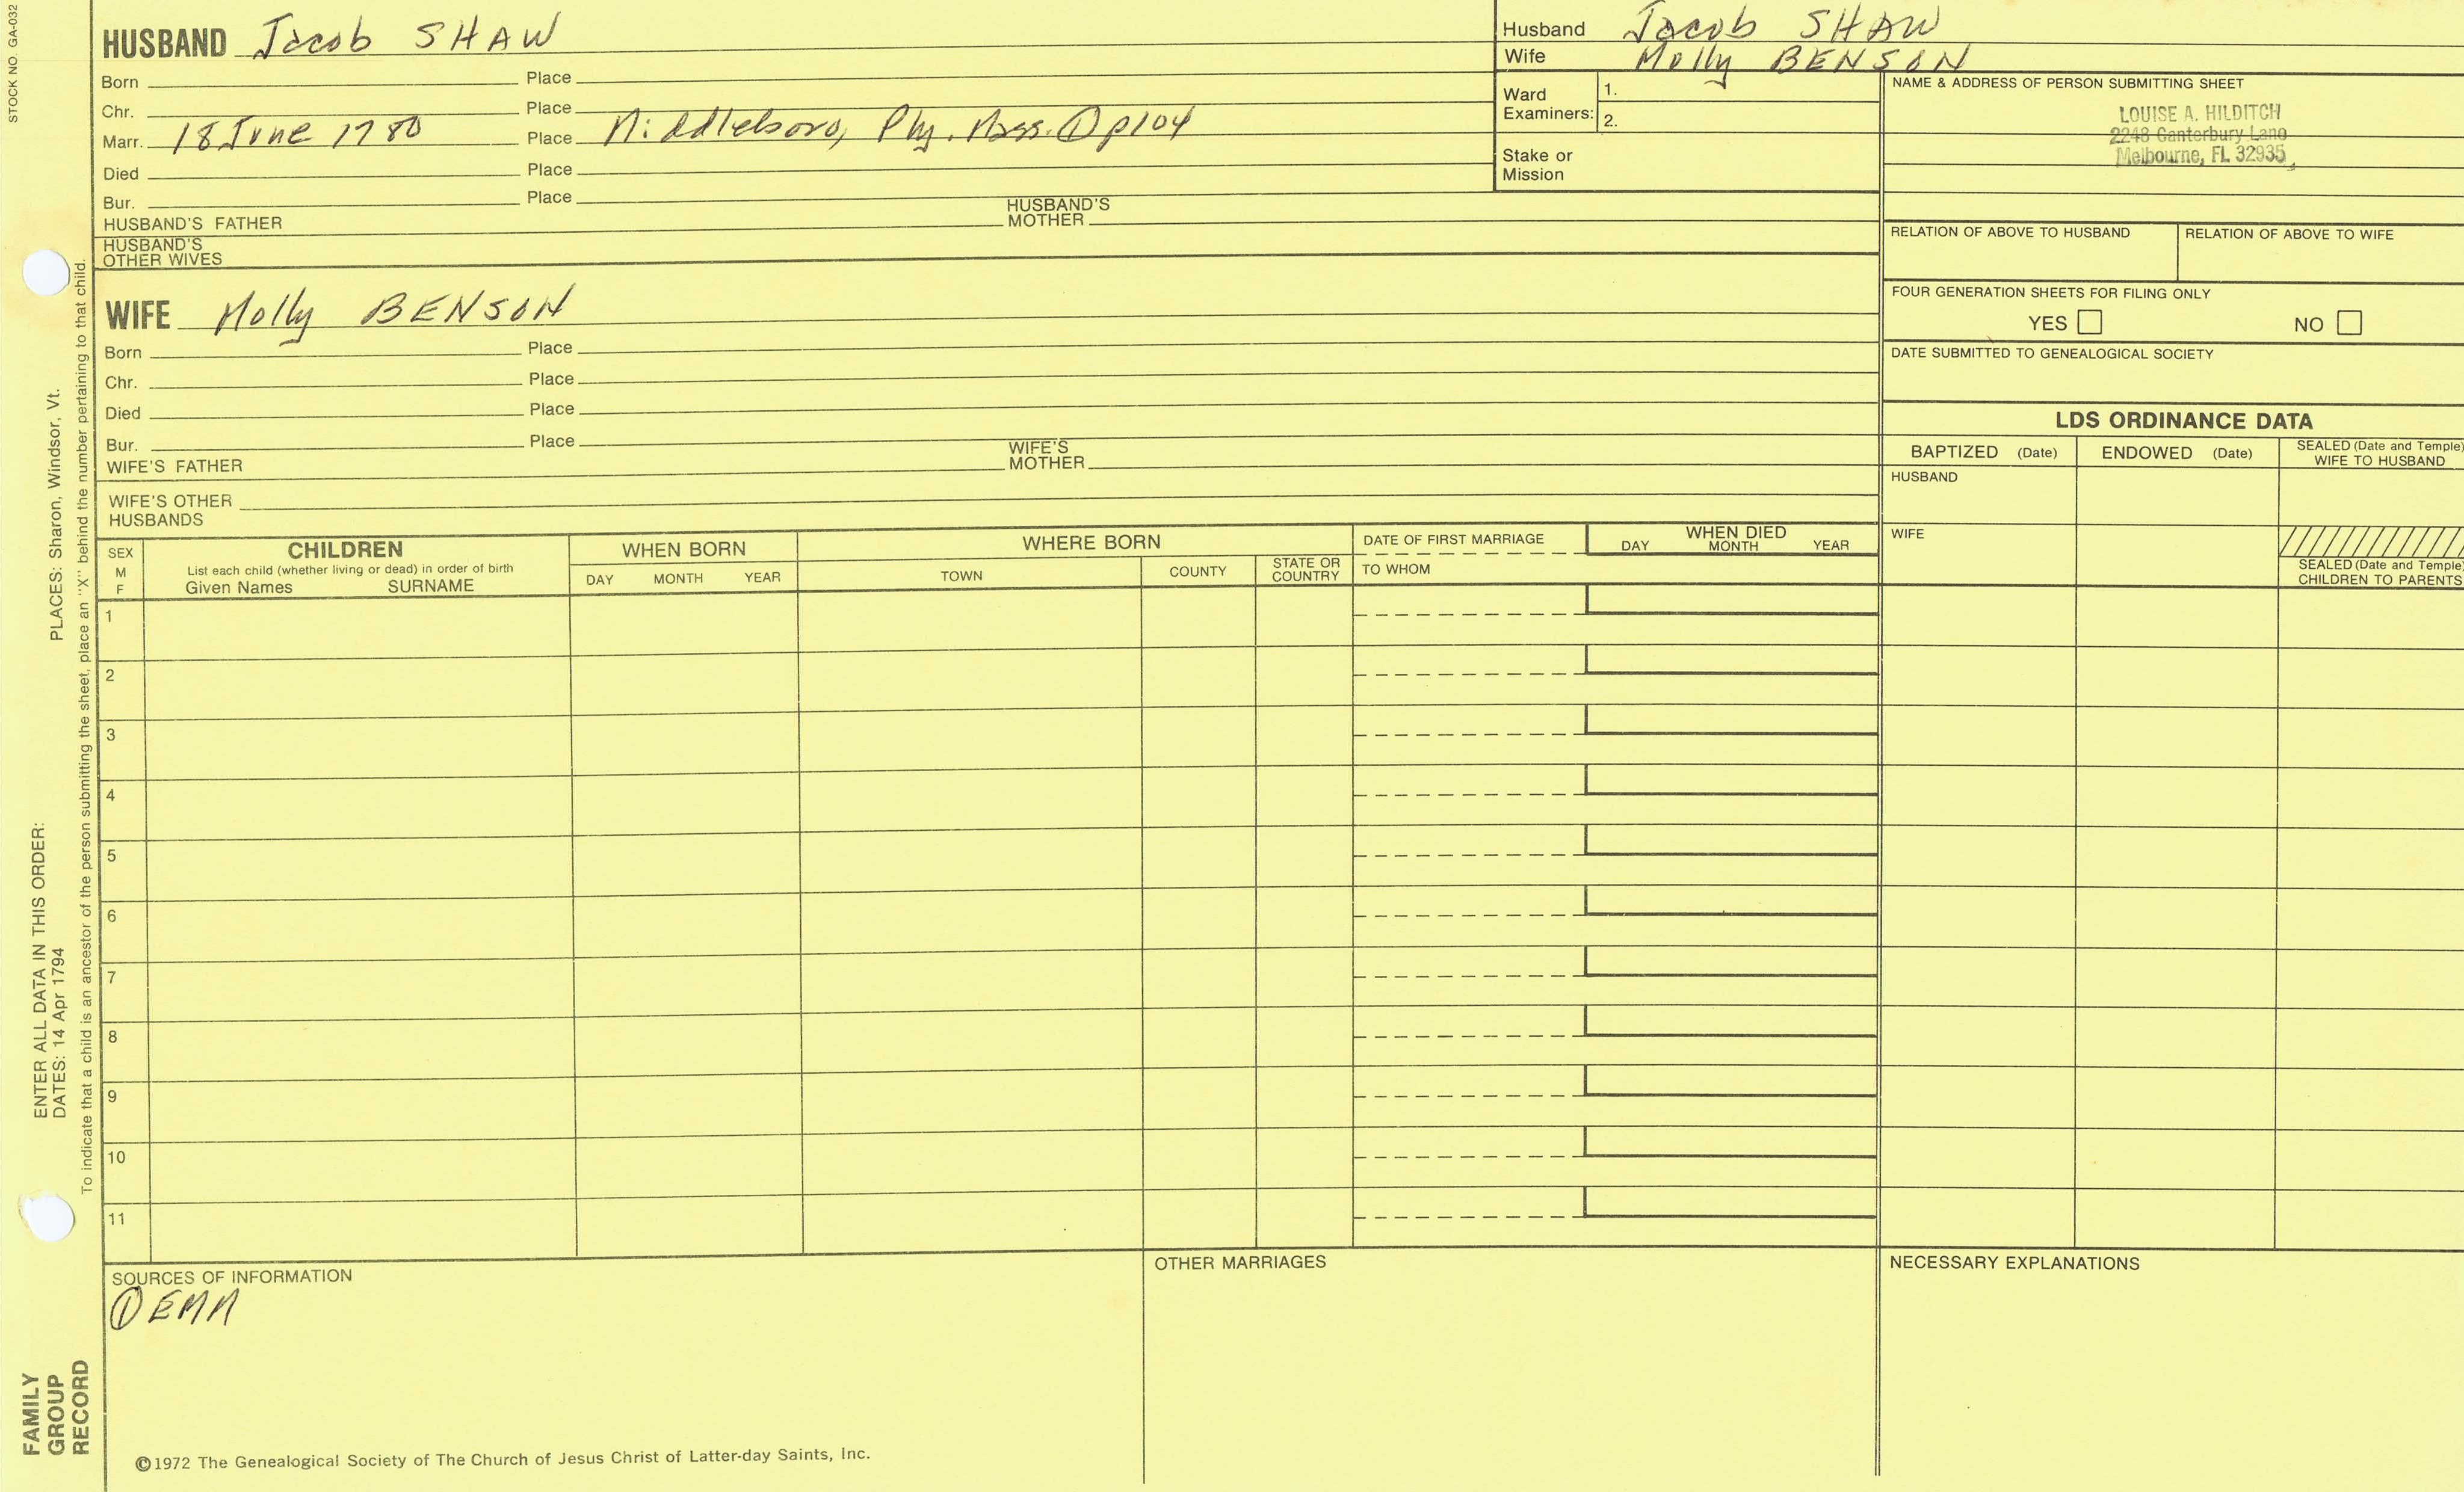 STOCK NO. GA-032
HUSBAND Jacob SHAW
Born Place
Chr. Place
Marr. 18 June 1780 Place Middleboro, Ply. Mass. ① p104
Died Place
Bur. Place
HUSBAND'S FATHER HUSBAND'S MOTHER
HUSBAND'S
OTHER WIVES
Husband Jacob SHAW
Wife Molly BENSON
Ward
Examiners:
1.
2.
Stake or
Mission
NAME & ADDRESS OF PERSON SUBMITTING SHEET
LOUISE A. HILDITCH
2248 Canterbury Lane
Melbourne, FL 32935
RELATION OF ABOVE TO HUSBAND RELATION OF ABOVE TO WIFE
FOUR GENERATION SHEETS FOR FILING ONLY
YES NO
DATE SUBMITTED TO GENEALOGICAL SOCIETY
WIFE Molly BENSON
Born Place
Chr. Place
Died Place
Bur. Place
WIFE'S FATHER WIFE'S MOTHER
WIFE'S OTHER
HUSBANDS
LDS ORDINANCE DATA
BAPTIZED (Date) ENDOWED (Date) SEALED (Date and Temple)
WIFE TO HUSBAND
HUSBAND
WIFE
SEALED (Date and Temple)
CHILDREN TO PARENTS
SEX
M
F
CHILDREN
List each child (whether living or dead) in order of birth
Given Names SURNAME
WHEN BORN
DAY MONTH YEAR
WHERE BORN
TOWN COUNTY STATE OR
COUNTRY
DATE OF FIRST MARRIAGE
TO WHOM
WHEN DIED
DAY MONTH YEAR
1
2
3
4
5
6
7
8
9
10
11
SOURCES OF INFORMATION
① EMM
OTHER MARRIAGES
NECESSARY EXPLANATIONS
©1972 The Genealogical Society of The Church of Jesus Christ of Latter-day Saints, Inc.
FAMILY
GROUP
RECORD
ENTER ALL DATA IN THIS ORDER:
DATES: 14 Apr 1794 PLACES: Sharon, Windsor, Vt.
To indicate that a child is an ancestor of the person submitting the sheet, place an "X" behind the number pertaining to that child.